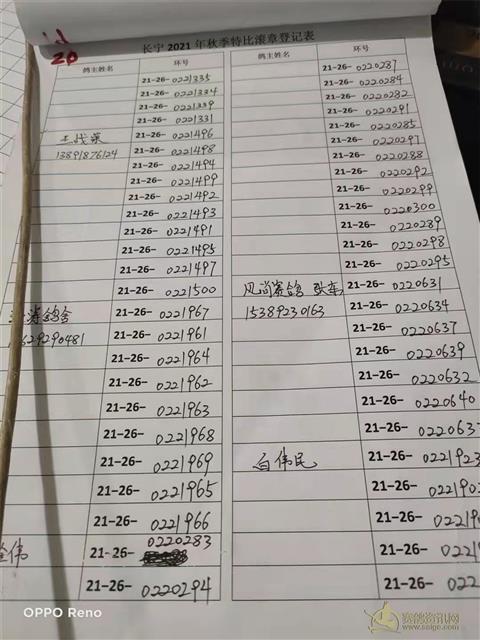 11
20
长宁 2021 年秋季特比滚章登记表
鸽主姓名 环号
21-26- 0221335
21-26- 0221334
21-26- 0221339
21-26- 0221331
王战荣 21-26- 0221496
13891876124 21-26- 0221498
21-26- 0221494
21-26- 0221499
21-26- 0221492
21-26- 0221493
21-26- 0221491
21-26- 0221495
21-26- 0221497
21-26- 0221500
鸽舍 21-26- 0221967
629290481 21-26- 0221961
21-26- 0221964
21-26- 0221962
21-26- 0221963
21-26- 0221968
21-26- 0221969
21-26- 0221965
21-26- 0221966
伟 21-26- 0220283
21-26- 0220294
鸽主姓名 环号
21-26- 0220287
21-26- 0220284
21-26- 0220282
21-26- 0220291
21-26- 0220285
21-26- 0220297
21-26- 0220288
21-26- 0220292
21-26- 0220299
21-26- 0220300
21-26- 0220289
21-26- 0220298
21-26- 0220295
风尚赛鸽 张 21-26- 0220631
15389230163 21-26- 0220634
21-26- 0220637
21-26- 0220639
21-26- 0220632
21-26- 0220640
21-26- 022063
白伟民 21-26- 021923
21-26- 02190
21-26- 0219
21-26- 0221
21-26- 022
OPPO Reno
赛鸽资讯网
www.saige.com